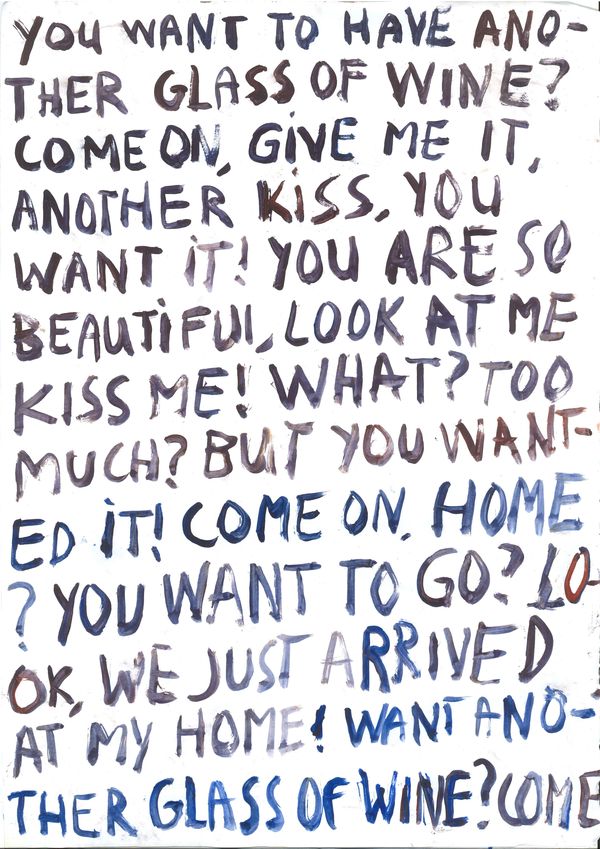 YOU WANT TO HAVE ANO-
THER GLASS OF WINE?
COME ON, GIVE ME IT,
ANOTHER KISS, YOU
WANT IT! YOU ARE SO
BEAUTIFUL, LOOK AT ME
KISS ME! WHAT? TOO
MUCH? BUT YOU WANT-
ED IT! COME ON, HOME
? YOU WANT TO GO? LO-
OK, WE JUST ARRIVED
AT MY HOME! WANT ANO-
THER GLASS OF WINE? COME